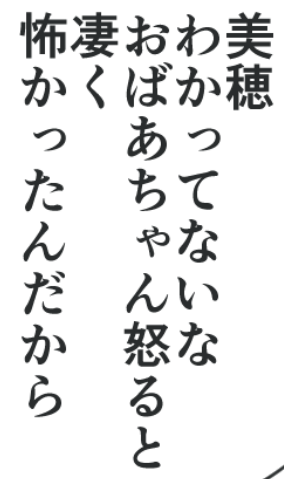 美穂
わかってないな
おばあちゃん怒ると
凄く
怖かったんだから